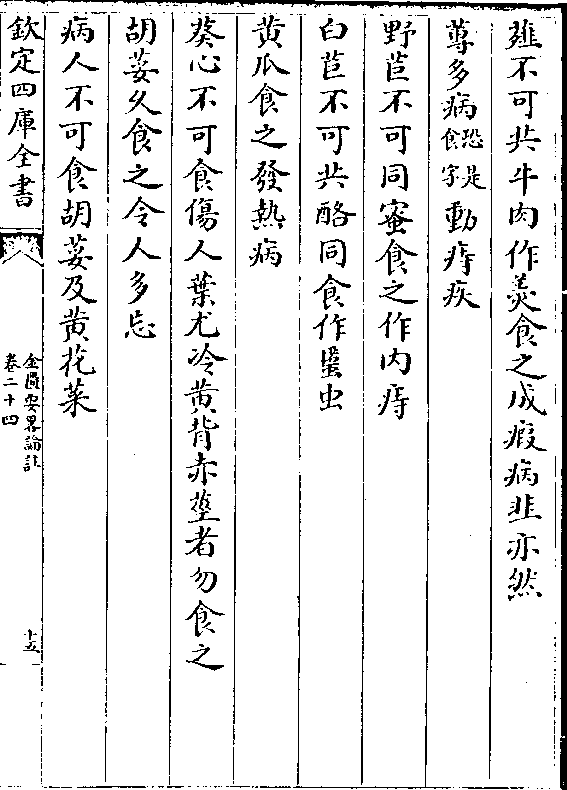 薤不可共牛肉作羮食之成瘕病韭亦然
蓴多病恐是食字動痔疾
野苣不可同蜜食之作内痔
白苣不可共酪同食作䘌虫
黄瓜食之發熱病
葵心不可食傷人葉尤冷黄背赤莖者勿食之
胡荽乆食之令人多忘
病人不可食胡荽及黄花菜
欽定四庫全書
金匱要畧論註
卷二十四
十五